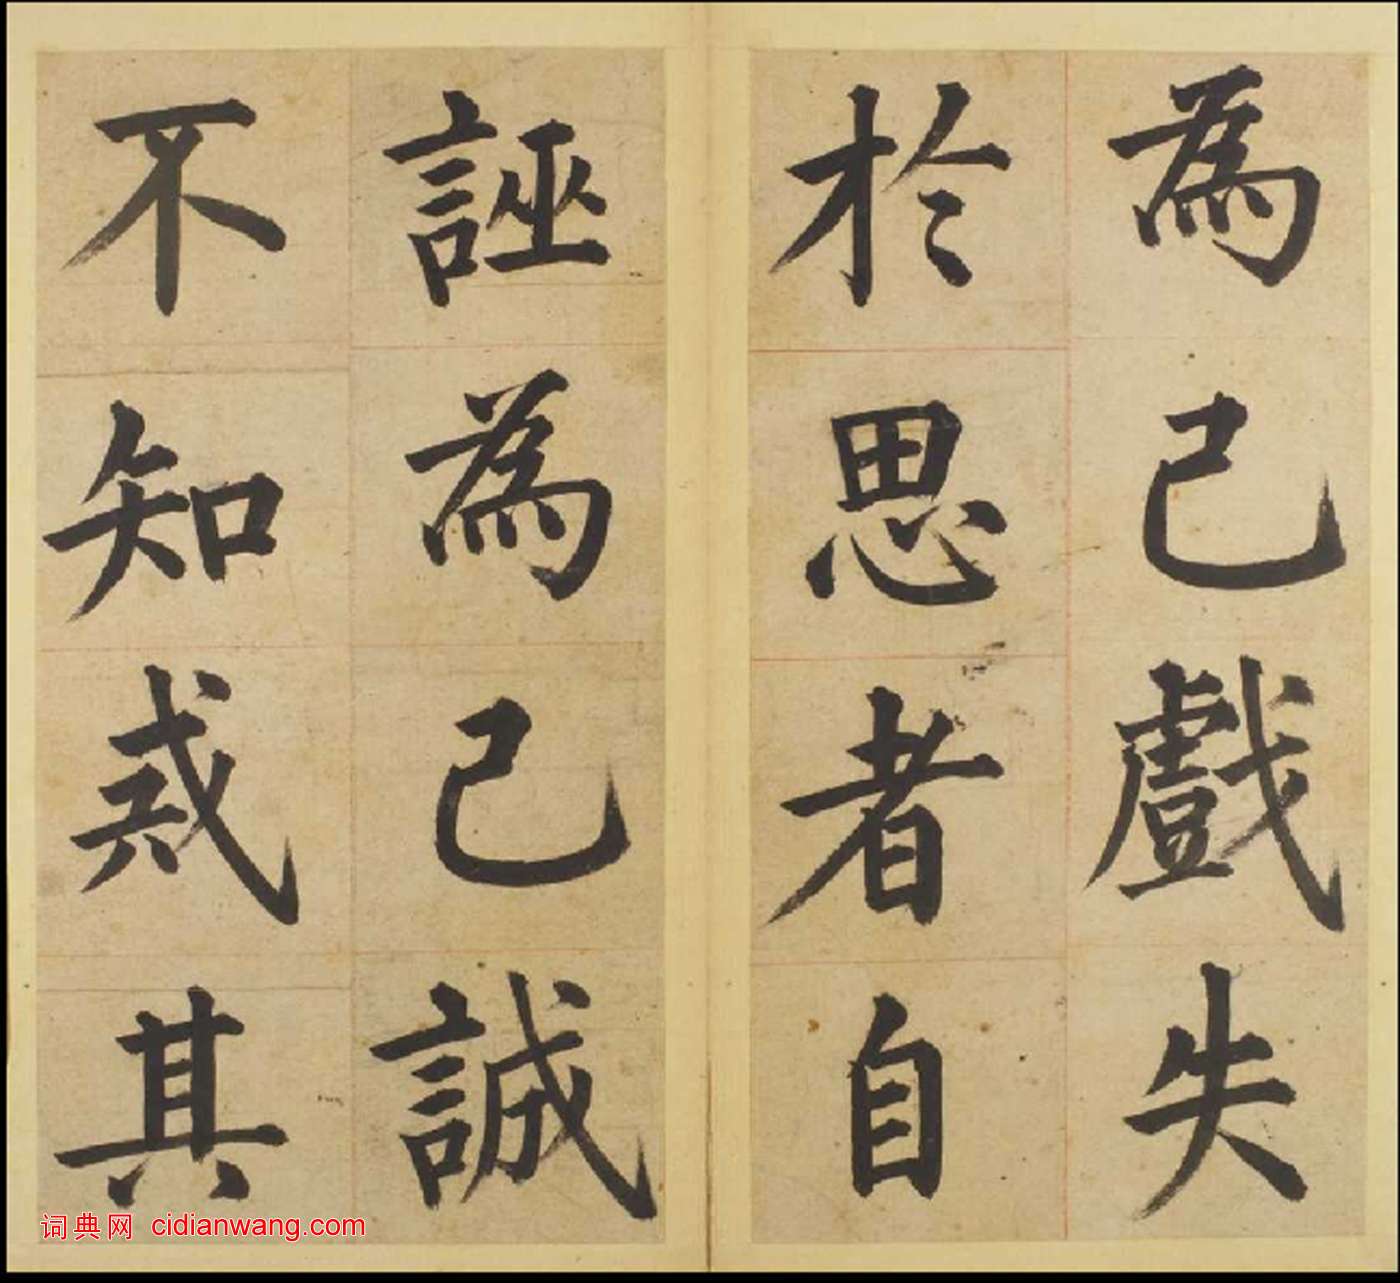 為己戲失
於思者自
誣為己誠
不知戒其
词典网 cidianwang.com